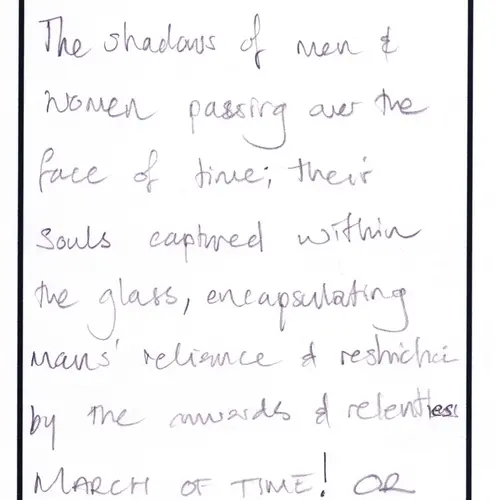 The shadows of men &
women passing over the
face of time; their
souls captured within
the glass, encapsulating
mans' reliance & restrictio
by the onwards & relentless
MARCH OF TIME! OR